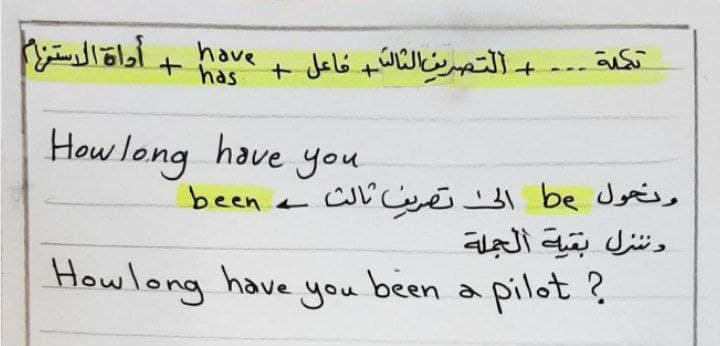 أداة الاستفهام + have has + فاعل + التصريف الثالث + ... تكملة
How long have you
ونحول be الى تصريف ثالث ← been
وننزل بقية الجملة
How long have you been a pilot ?